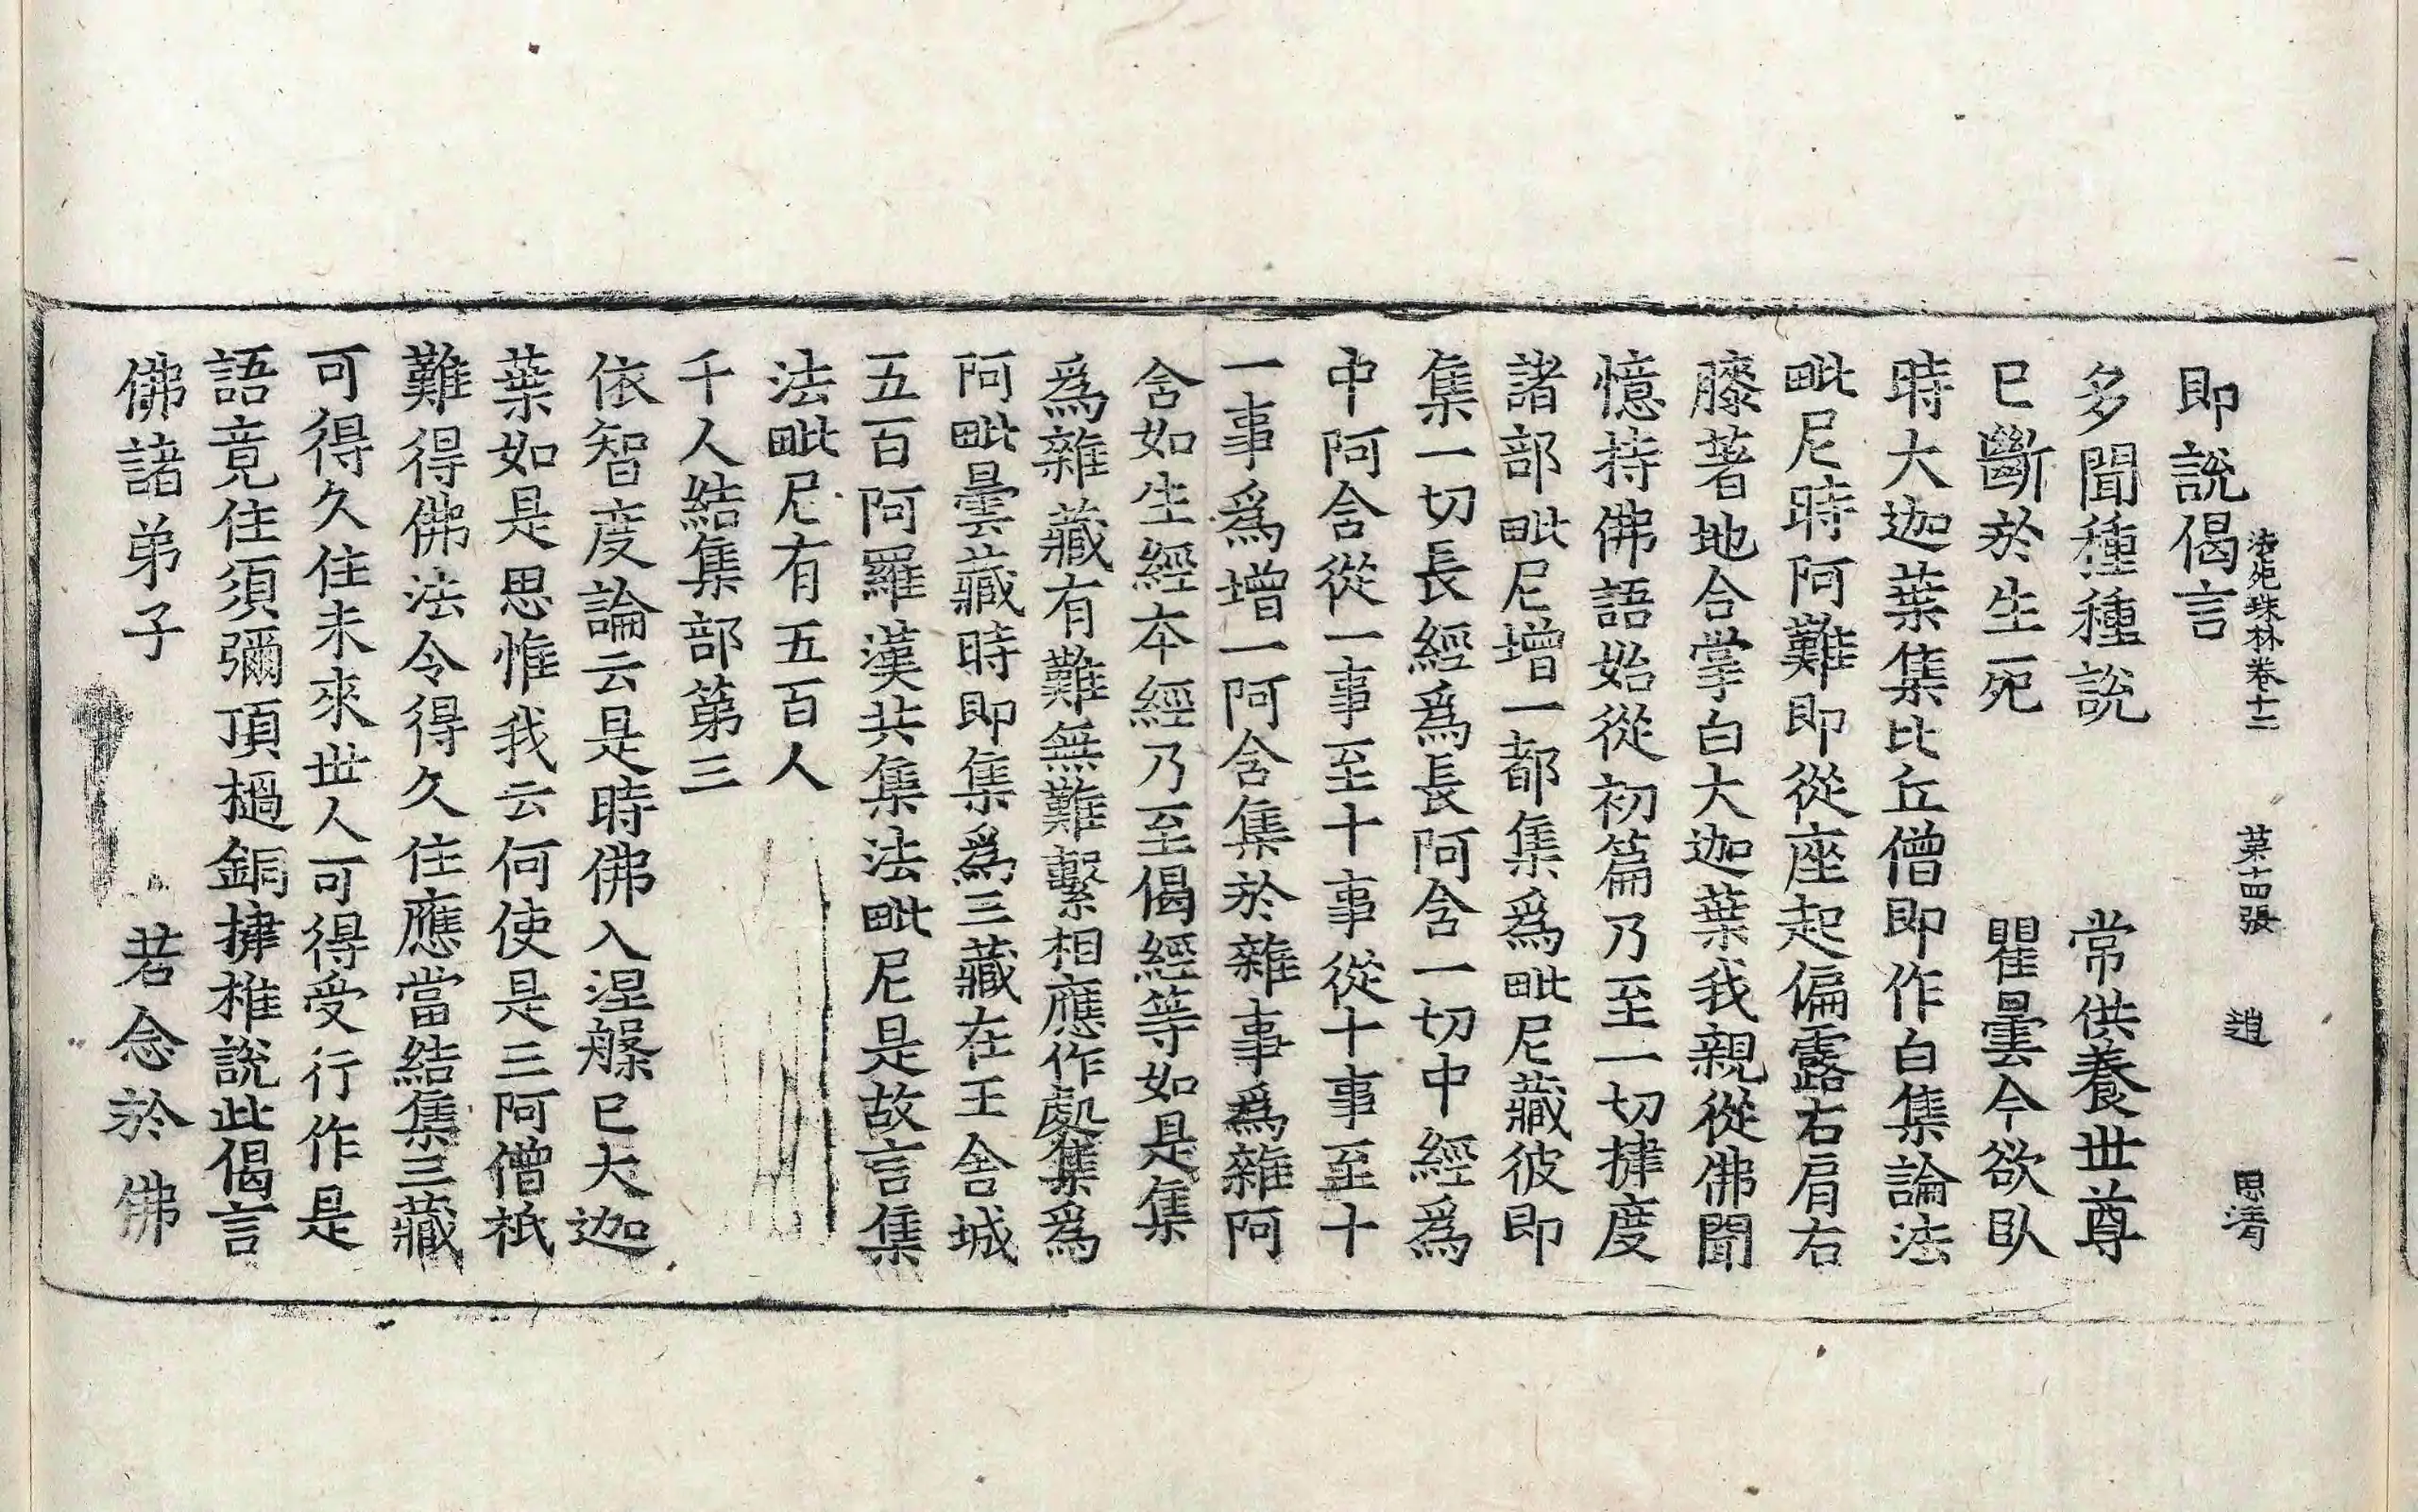 即說偈言
法苑珠林卷十二 第十四張 趙 思清
多聞種種說 常供養世尊
已斷於生死 瞿曇今欲臥
時大迦葉集比丘僧即作白集論法
毗尼時阿難即從座起偏露右肩右
膝著地合掌白大迦葉我親從佛聞
憶持佛語始從初篇乃至一切揵度
諸部毗尼增一都集爲毗尼藏彼即
集一切長經爲長阿含一切中經爲
中阿含從一事至十事從十事至十
一事爲增一阿含集於雜事爲雜阿
含如生經本經乃至偈經等如是集
爲雜藏有難無難繫相應作處集爲
阿毗曇藏時即集爲三藏在王舍城
五百阿羅漢共集法毗尼是故言集
法毗尼有五百人
千人結集部第三
依智度論云是時佛入涅槃已大迦
葉如是思惟我云何使是三阿僧祇
難得佛法令得久住應當結集三藏
可得久住未來世人可得受行作是
語竟住須彌頂撾銅揵椎說此偈言
佛諸弟子 若念於佛